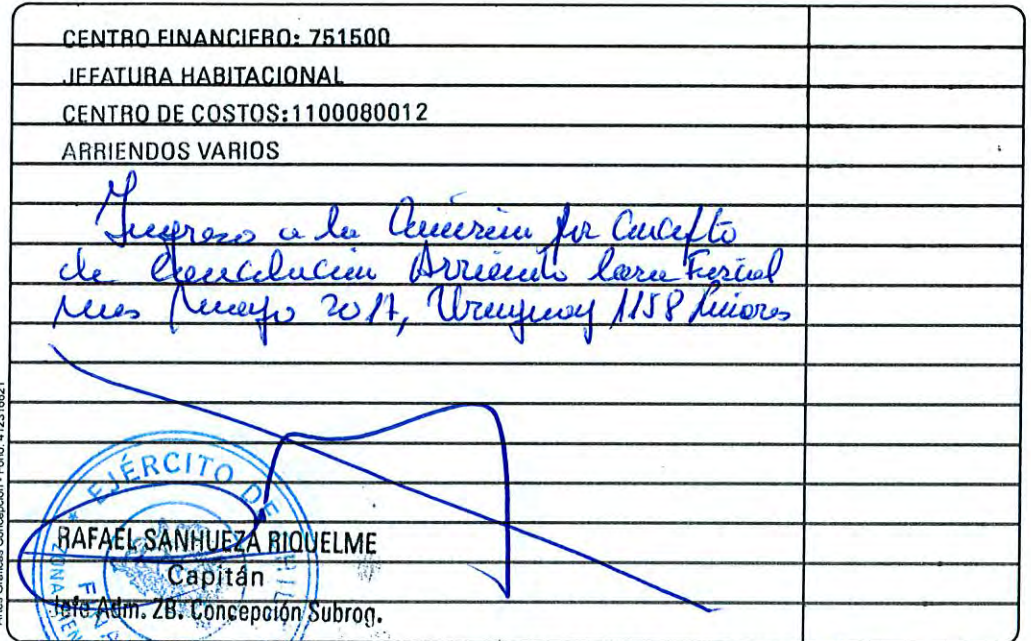 CENTRO FINANCIERO: 751500
JEFATURA HABITACIONAL
CENTRO DE COSTOS:1100080012
ARRIENDOS VARIOS
Ingreso a la por Concepto
de Cancelación Arriendo Casa Fiscal
mes mayo 2017, Uruguay 1158 Linares
EJÉRCITO DE
RAFAEL SANHUEZA RIQUELME
Capitán
Jefe Adm. ZB. Concepción Subrog.